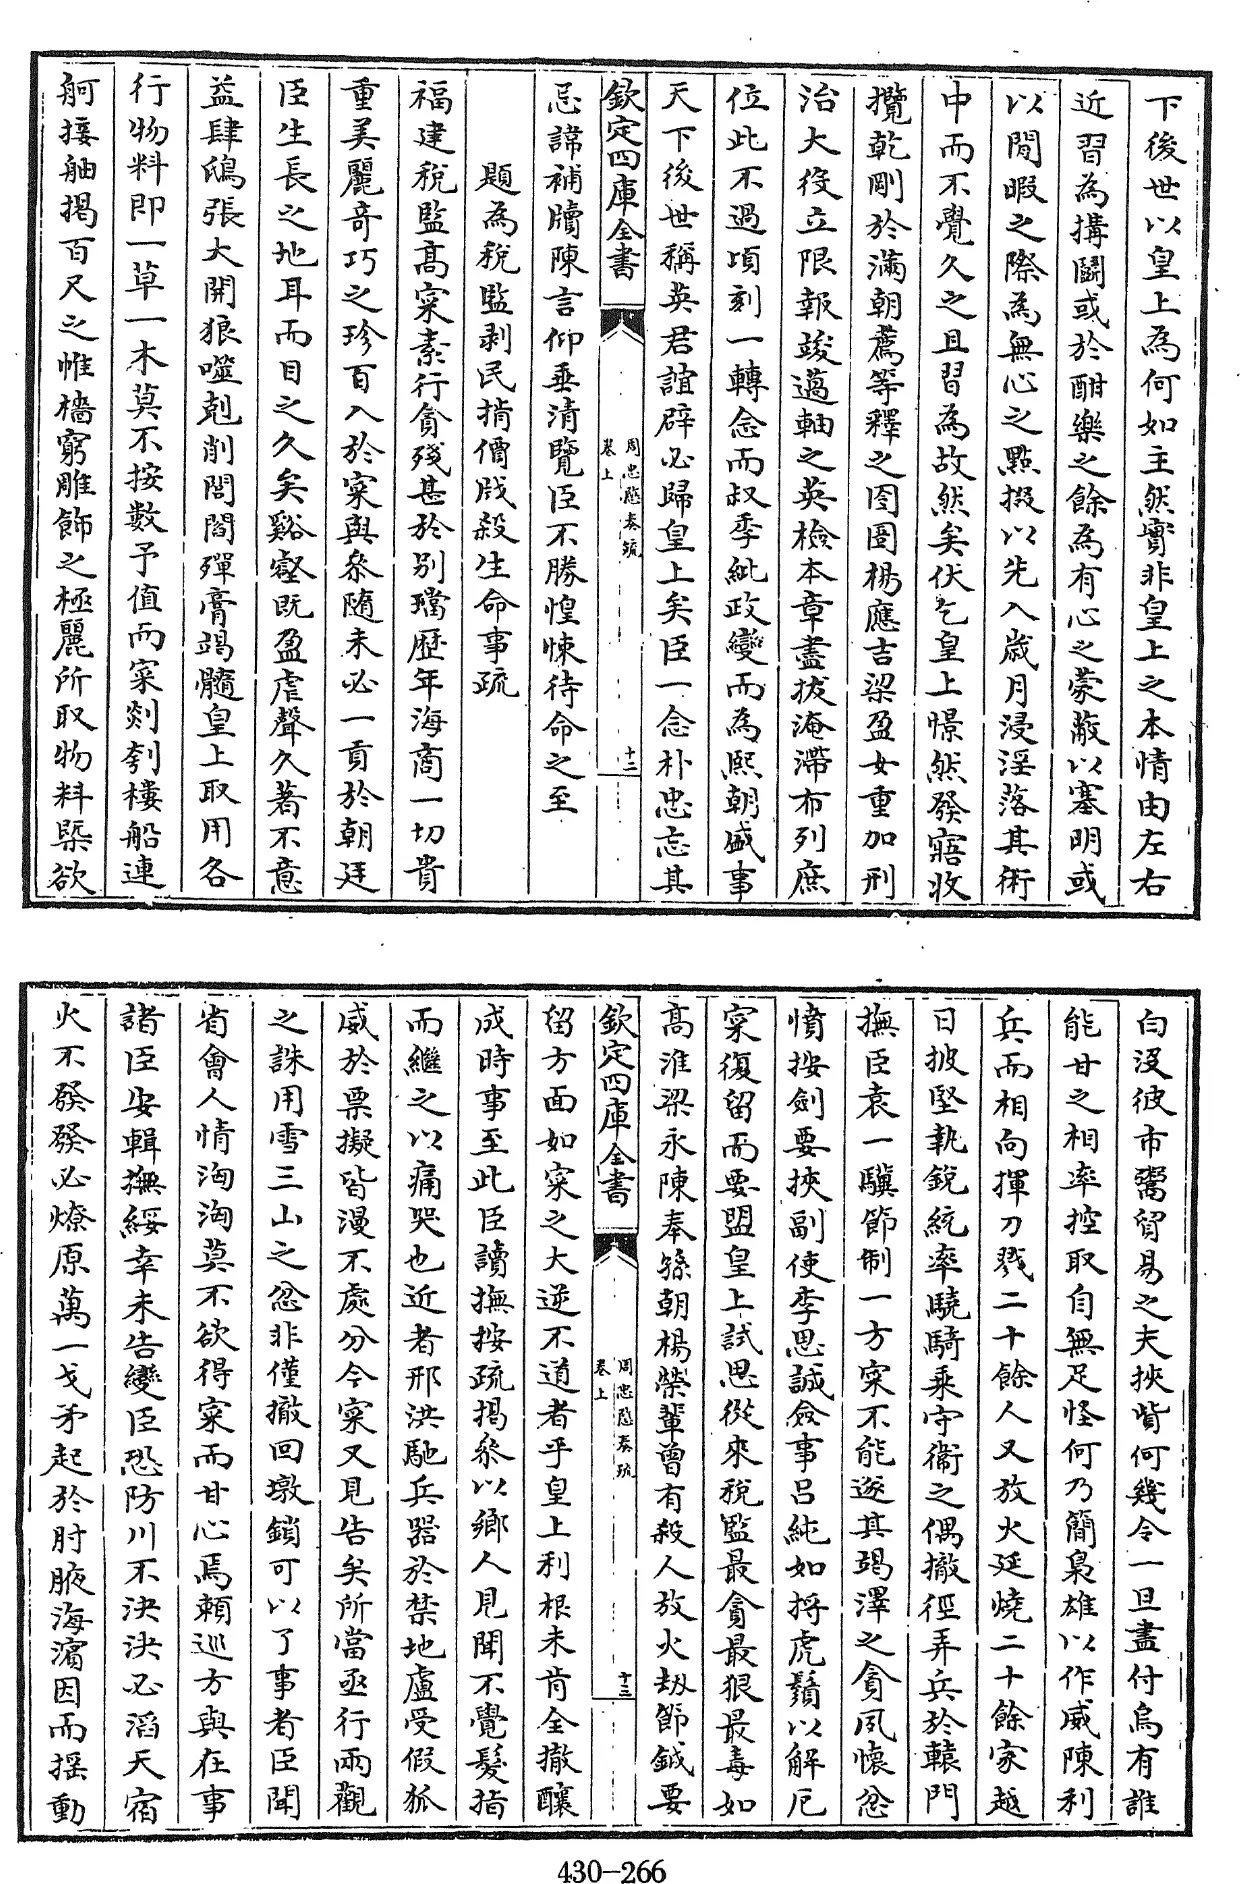 下後世以皇上為何如主然實非皇上之本情由左右
近習為搆鬬或於酣樂之餘為有心之蒙蔽以塞明或
以閒暇之際為無心之點掇以先入歲月浸淫落其術
中而不覺久之且習為故然矣伏乞皇上憬然發寤收
攬乾剛於滿朝薦等釋之囹圄楊應吉梁盈女重加刑
治大役立限報竣薖軸之英檢本章盡拔淹滯布列庶
位此不過頃刻一轉念而叔季紕政變而為熙朝盛事
天下後世稱英君誼辟必歸皇上矣臣一念朴忠忘其
欽定四庫全書
周忠愍奏疏
卷上
十二
忌諱補牘陳言仰垂清覽臣不勝惶悚待命之至
題為稅監剥民揹價戕殺生命事疏
福建稅監高寀素行貪殘甚於别璫歷年海商一切貴
重美麗奇巧之珍百入於寀與叅隨未必一貢於朝廷
臣生長之地耳而目之久矣谿壑既盈虐聲久著不意
益肆鴟張大開狼噬剋削閭閻殫膏竭髓皇上取用各
行物料即一草一木莫不按數予值而寀剡刳樓船連
舸接舳揭百尺之帷檣窮雕飾之極麗所取物料槩欲
白沒彼市鬻貿易之夫挾貲何幾今一旦盡付烏有誰
能甘之相率控取自無足怪何乃簡梟雄以作威陳利
兵而相向揮刀戮二十餘人又放火延燒二十餘家越
日披堅執銳統率驍騎乘守衞之偶撤徑弄兵於轅門
撫臣袁一驥節制一方寀不能遂其竭澤之貪風懷忿
憤按劍要挾副使李思誠僉事呂純如捋虎鬚以解厄
寀復留而要盟皇上試思從來稅監最貪最狠最毒如
高淮梁永陳奉孫朝楊榮輩曾有殺人放火刼節鉞要
欽定四庫全書
周忠愍奏疏
卷上
十三
留方面如寀之大逆不道者乎皇上利根未肯全撤釀
成時事至此臣讀撫按疏揭叅以鄉人見聞不覺髮指
而繼之以痛哭也近者邢洪馳兵器於禁地盧受假狐
威於票擬皆漫不處分今寀又見告矣所當亟行兩觀
之誅用雪三山之忿非僅撤回墩鎖可以了事者臣聞
省會人情洶洶莫不欲得寀而甘心焉頼巡方與在事
諸臣安輯撫綏幸未告變臣恐防川不決決必滔天宿
火不發發必燎原萬一戈矛起於肘腋海濵因而揺動
430-266